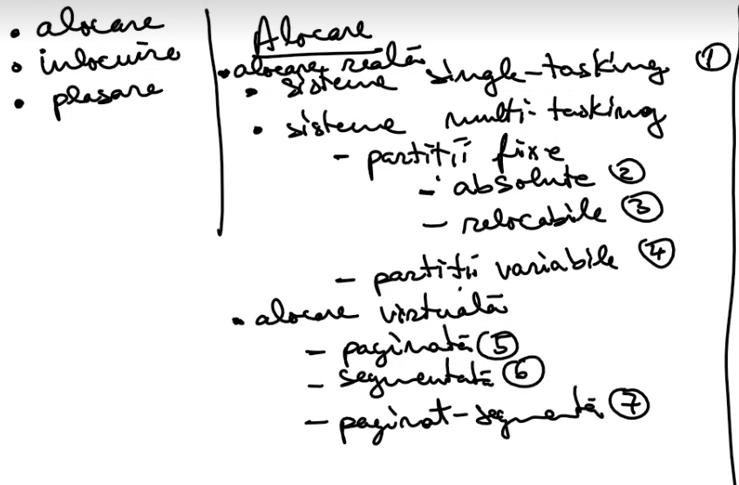 • alocare
• inlocuire
• plasare
Alocare
• alocare reală
• sisteme single-tasking ①
• sisteme multi-tasking
- partiții fixe
- absolute ②
- relocabile ③
- partiții variabile ④
• alocare virtuală
- paginată ⑤
- segmentată ⑥
- paginat-segmentă ⑦